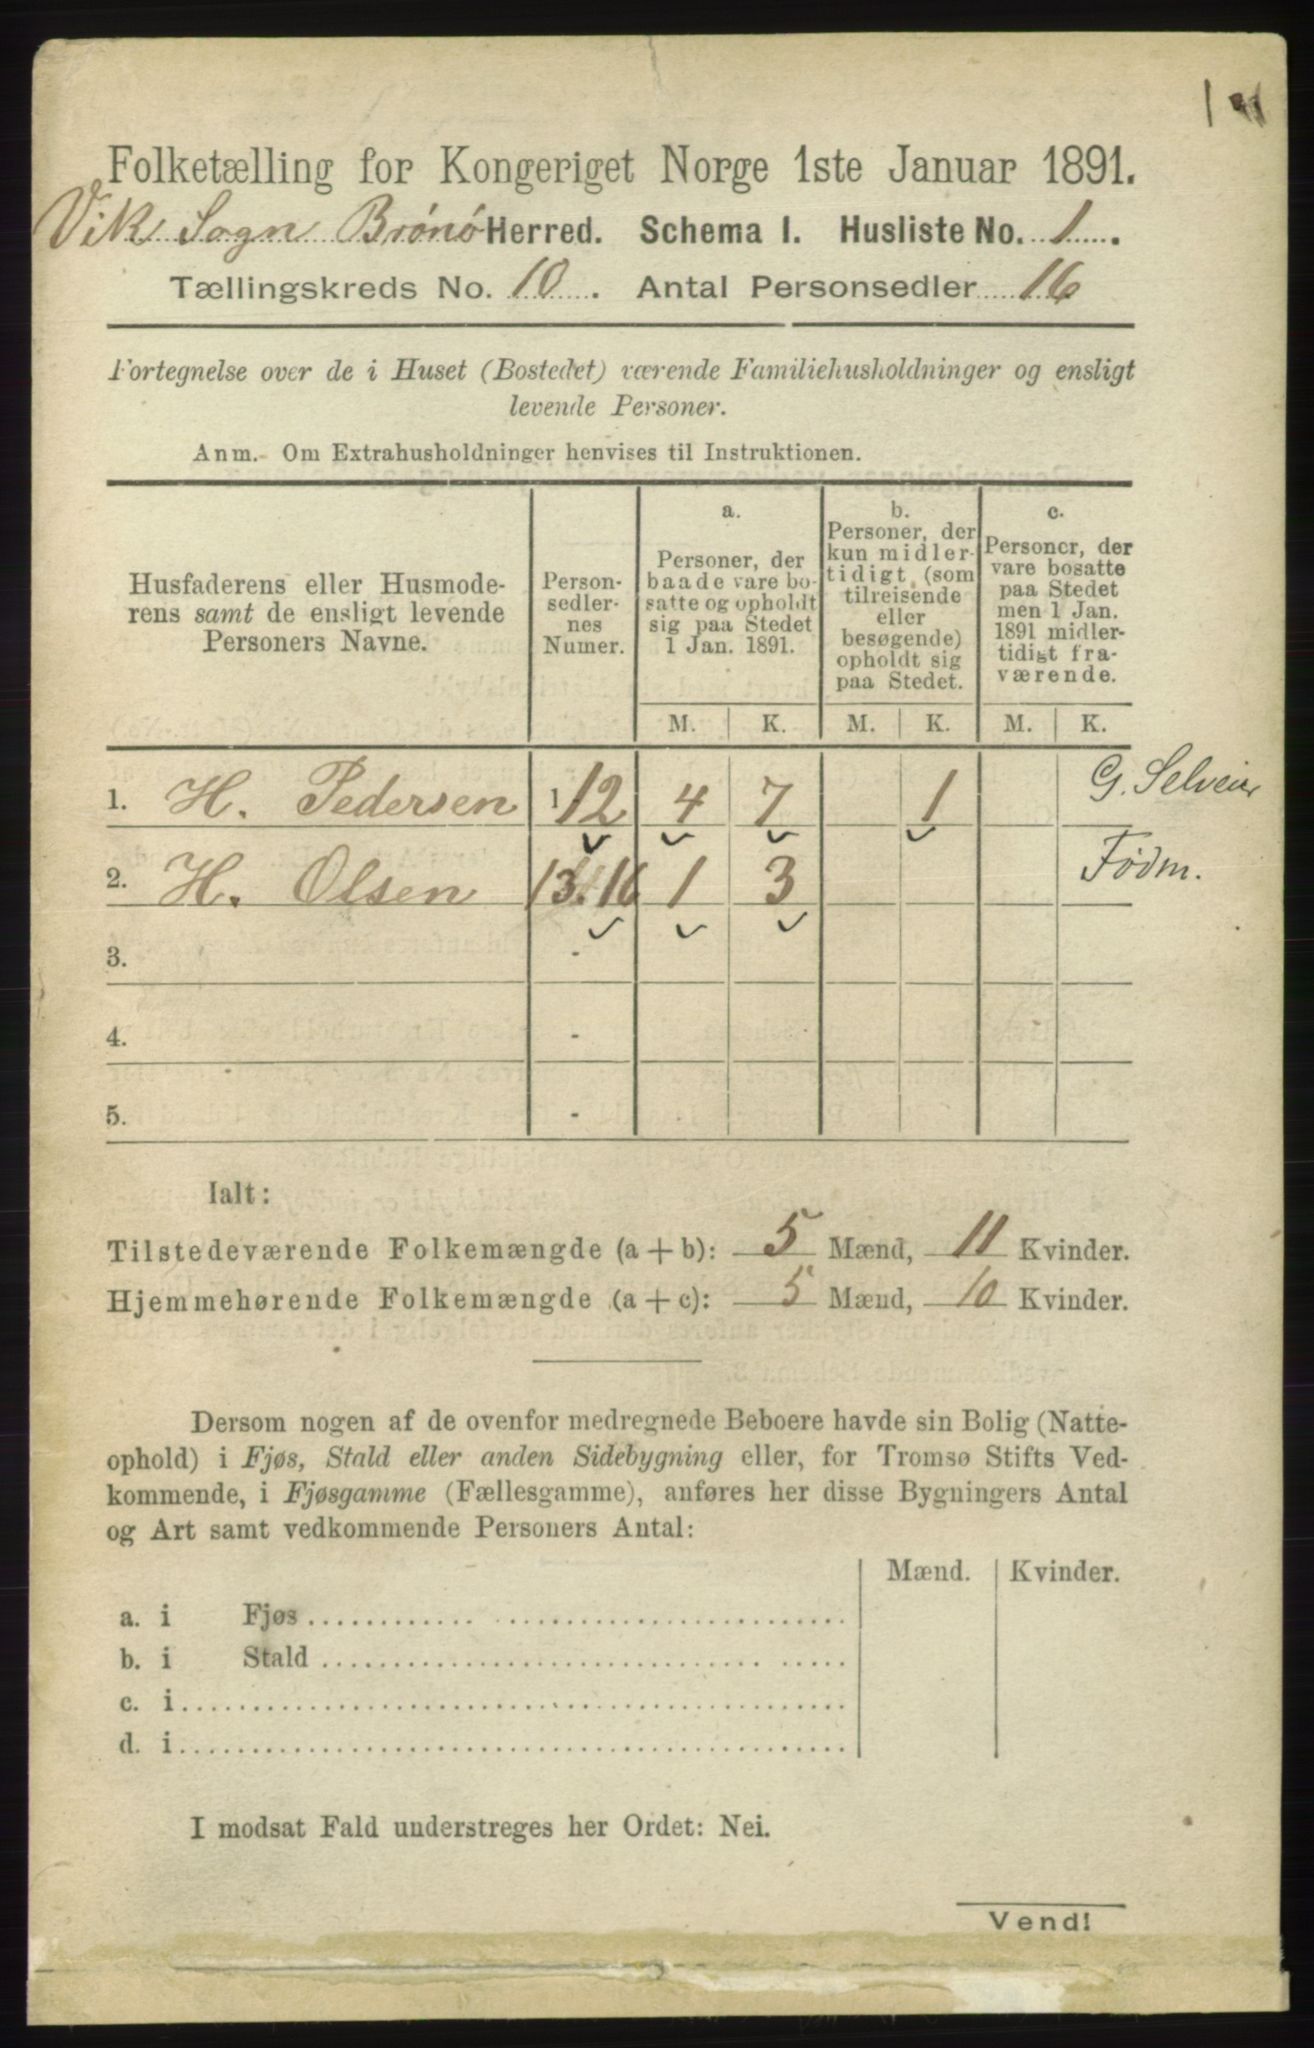 Folketælling for Kongeriget Norge 1ste Januar 1891.
Vik Sogn Brønø Herred. Schema I. Husliste No. 1.
Tællingskreds No. 10. Antal Personsedler 16
Fortegnelse over de i Huset (Bostedet) værende Familiehusholdninger og ensligt
levende Personer.
Anm. Om Extrahusholdninger henvises til Instruktionen.
Husfaderens eller Husmode-
rens samt de ensligt levende
Personers Navne.
Person-
sedler-
nes
Numer.
a.
Personer, der
baade vare bo-
satte og opholdt
sig paa Stedet
1 Jan. 1891.
b.
Personer, der
kun midler-
tidigt (som
tilreisende
eller
besøgende)
opholdt sig
paa Stedet.
c.
Personer, der
vare bosatte
paa Stedet
men 1 Jan.
1891 midler-
tidigt fra-
værende.
M. K. M. K. M. K.
1. H. Pedersen 1 12 4 7 1 G. Selveier
2. H. Olsen 13. 16 1 3 Fødm.
3. -
4. -
5. -
Ialt:
Tilstedeværende Folkemængde (a + b): 5 Mænd, 11 Kvinder.
Hjemmehørende Folkemængde (a + c): 5 Mænd, 10 Kvinder.
Dersom nogen af de ovenfor medregnede Beboere havde sin Bolig (Natte-
ophold) i Fjøs, Stald eller anden Sidebygning eller, for Tromsø Stifts Ved-
kommende, i Fjøsgamme (Fællesgamme), anføres her disse Bygningers Antal
og Art samt vedkommende Personers Antal:
Mænd. Kvinder.
a. i Fjøs
b. i Stald
c. i
d. i
I modsat Fald understreges her Ordet: Nei.
Vend!